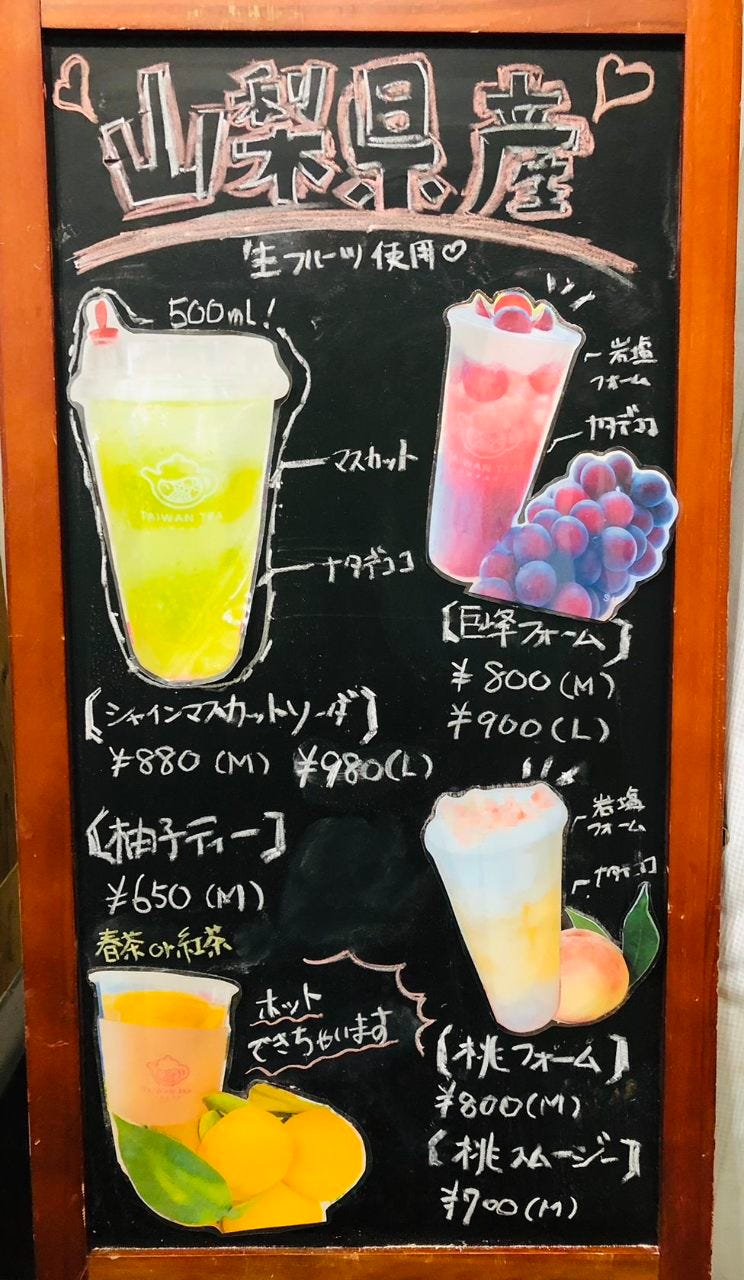 山梨県産
生フルーツ使用♡
500ml!
マスカット
ナタデココ
TAIWAN TEA
【シャインマスカットソーダ】
¥880(M) ¥980(L)
岩塩
フォーム
ナタデココ
TAIWAN TEA
【巨峰フォーム】
¥800(M)
¥900(L)
【柚子ティー】
¥650(M)
春茶or紅茶
ホット
できちゃいます
TAIWAN TEA
岩塩
フォーム
ナタデココ
【桃フォーム】
¥800(M)
【桃スムージー】
¥700(M)